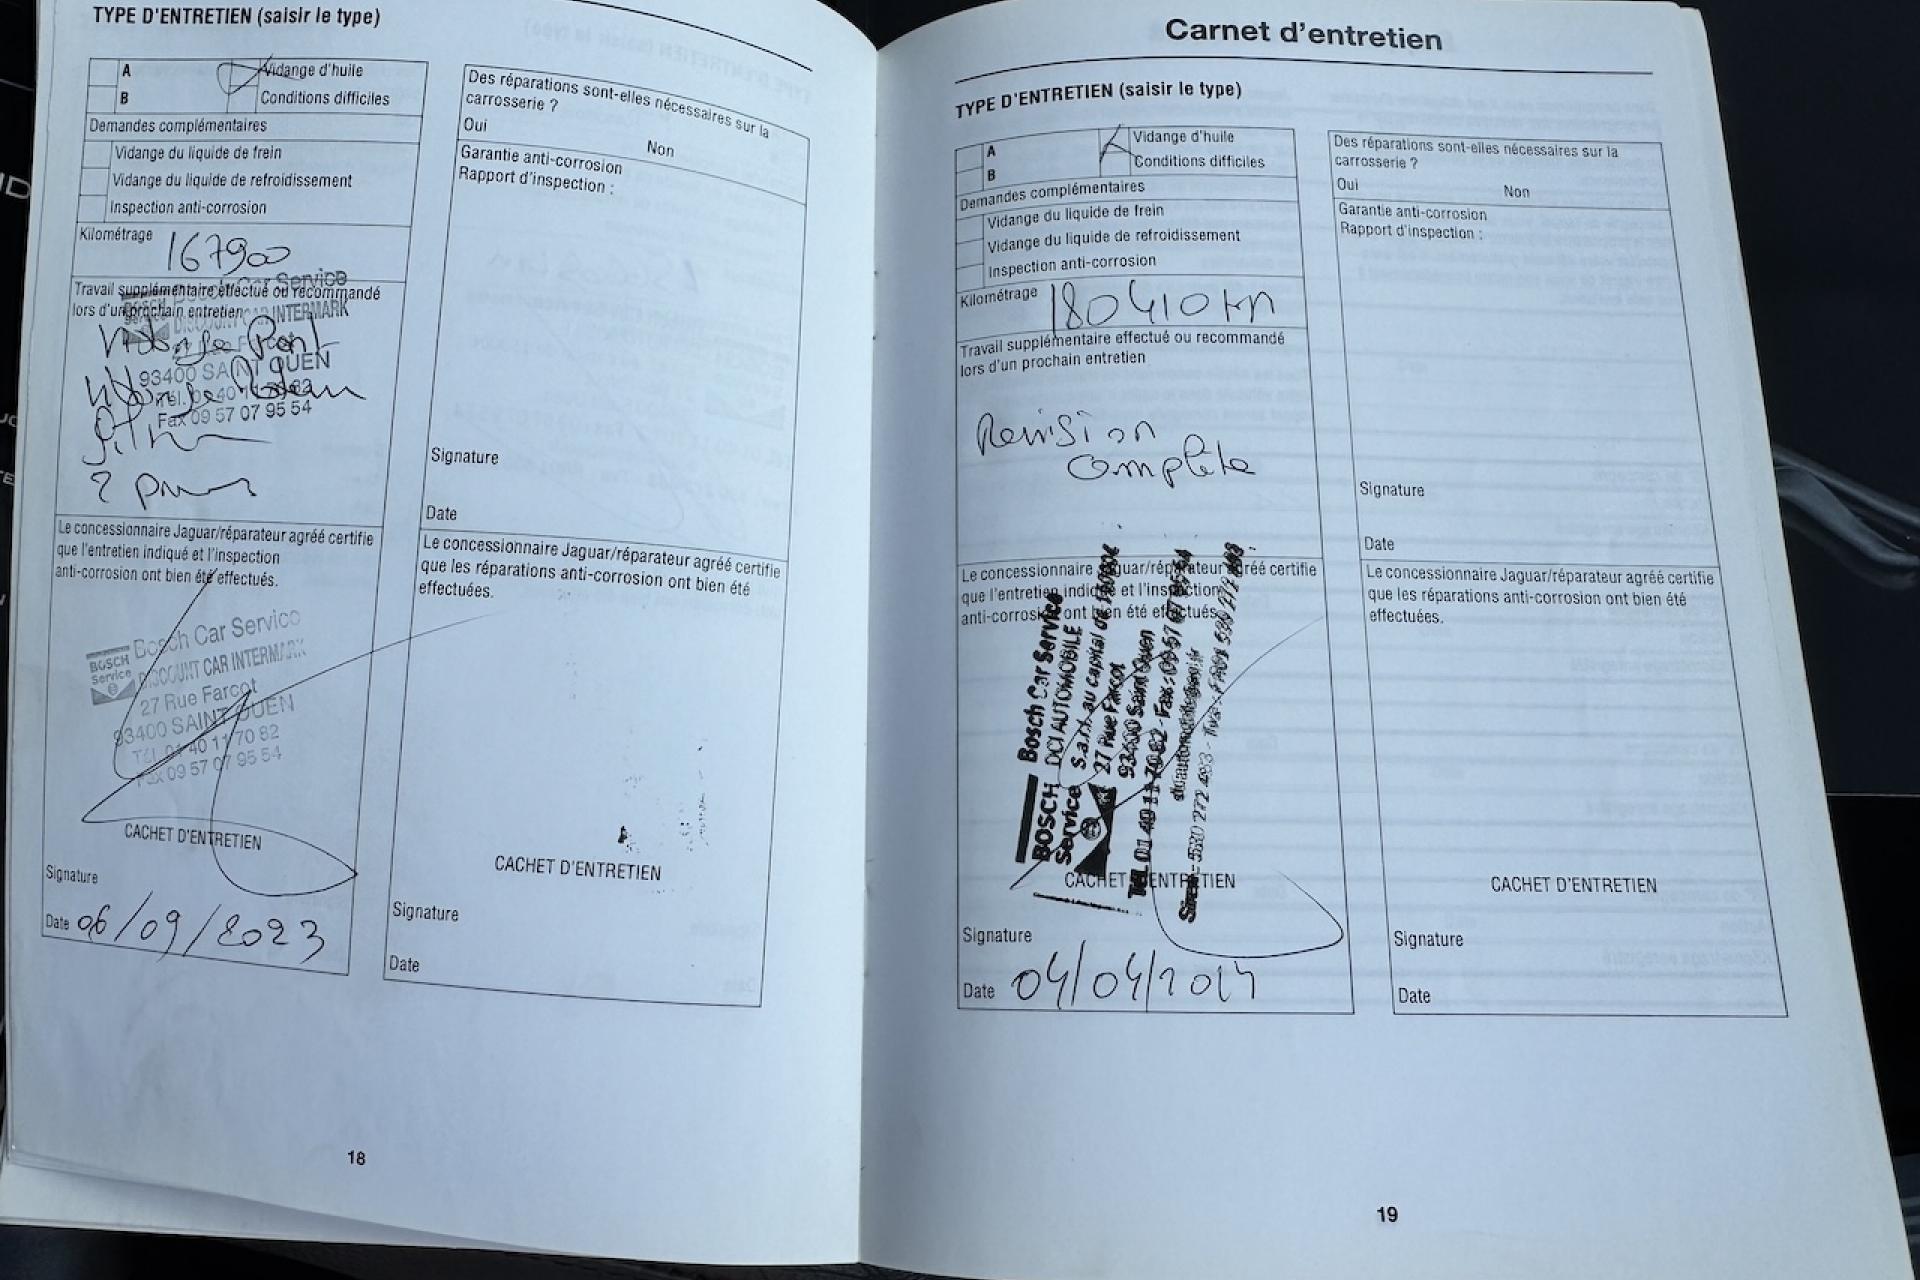 TYPE D'ENTRETIEN (saisir le type)
A
Vidange d'huile
B
Conditions difficiles
Demandes complémentaires
Vidange du liquide de frein
Vidange du liquide de refroidissement
Inspection anti-corrosion
Kilométrage 167900
Travail supplémentaire effectué ou recommandé
lors d'un prochain entretien
Bosch Car Service
BOSCH
Service
DISCOUNT CAR INTERMARK
93400 SAINT OUEN
Fax 09 57 07 95 54
Vidange Pont
2 pneus
Le concessionnaire Jaguar/réparateur agréé certifie
que l'entretien indiqué et l'inspection
anti-corrosion ont bien été effectués.
Bosch Car Service
BOSCH
Service
DISCOUNT CAR INTERMARK
27 Rue Farcot
93400 SAINT OUEN
Tél. 01 40 11 70 82
Fax 09 57 07 95 54
CACHET D'ENTRETIEN
Signature
Date 06/09/2023
Des réparations sont-elles nécessaires sur la
carrosserie ?
Oui
Non
Garantie anti-corrosion
Rapport d'inspection :
Signature
Date
Le concessionnaire Jaguar/réparateur agréé certifie
que les réparations anti-corrosion ont bien été
effectuées.
CACHET D'ENTRETIEN
Signature
Date
18
Carnet d'entretien
TYPE D'ENTRETIEN (saisir le type)
A
Vidange d'huile
B
Conditions difficiles
Demandes complémentaires
Vidange du liquide de frein
Vidange du liquide de refroidissement
Inspection anti-corrosion
Kilométrage 180410 km
Travail supplémentaire effectué ou recommandé
lors d'un prochain entretien
Revision
complète
Le concessionnaire Jaguar/réparateur agréé certifie
que l'entretien indiqué et l'inspection
anti-corrosion ont bien été effectués.
Bosch Car Service
BOSCH
Service
DCI AUTOMOBILE
S.a.r.l. au capital de
27 Rue Farcot
93400 Saint Ouen
Tél. 01 40 11 70 82 - Fax : 09 57 07 95 54
CACHET D'ENTRETIEN
Signature
Date 04/04/2024
Des réparations sont-elles nécessaires sur la
carrosserie ?
Oui
Non
Garantie anti-corrosion
Rapport d'inspection :
Signature
Date
Le concessionnaire Jaguar/réparateur agréé certifie
que les réparations anti-corrosion ont bien été
effectuées.
CACHET D'ENTRETIEN
Signature
Date
19